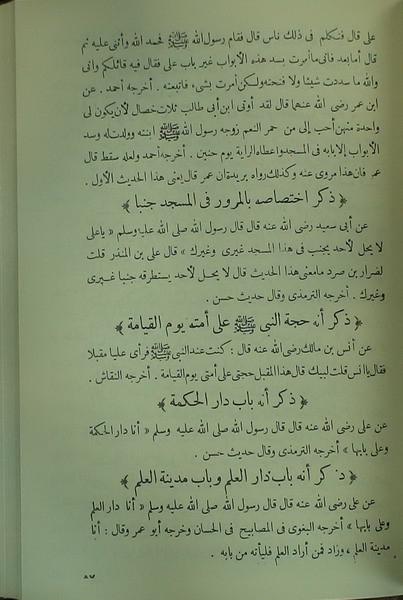 على قال فتكلم فى ذلك ناس قال فقام رسول الله ﷺ فحمد الله وأثنى عليه ثم
قال أما بعد فانى أمرت بسد هذه الأبواب غير باب على فقال فيه قائلكم وانى
والله ما سددت شيئا ولا فتحته ولكن أمرت بشىء فاتبعته . أخرجه أحمد . عن
ابن عمر رضى الله عنهما قال لقد أوتى ابن أبى طالب ثلاث خصال لأن يكون لى
واحدة منهن أحب إلى من حمر النعم زوجه رسول الله ﷺ ابنته وولدت له وسد
الأبواب إلا بابه فى المسجد وأعطاه الراية يوم حنين . أخرجه أحمد ولعله سقط قال
عمر فان هذا مروى عنه وكذلك رواه بريدة ان عمر قال يعنى هذا الحديث الأول .
﴿ ذكر اختصاصه بالمرور فى المسجد جنبا ﴾
عن أبى سعيد رضى الله عنه قال قال رسول الله صلى الله عليه وسلم « يا على
لا يحل لأحد يجنب فى هذا المسجد غيرى وغيرك » قال على بن المنذر قلت
لضرار بن صرد ما معنى هذا الحديث قال لا يحل لأحد يستطرقه جنبا غيرى
وغيرك . أخرجه الترمذى وقال حديث حسن .
﴿ ذكر أنه حجة النبى ﷺ على أمته يوم القيامة ﴾
عن أنس بن مالك رضى الله عنه قال : كنت عند النبى ﷺ فرأى عليا مقبلا
فقال يا أنس قلت لبيك قال هذا المقبل حجتى على أمتى يوم القيامة . أخرجه النقاش .
﴿ ذكر أنه باب دار الحكمة ﴾
عن على رضى الله عنه قال قال رسول الله صلى الله عليه وسلم « أنا دار الحكمة
وعلى بابها » أخرجه الترمذى وقال حديث حسن .
﴿ ذكر أنه باب دار العلم وباب مدينة العلم ﴾
عن على رضى الله عنه قال قال رسول الله صلى الله عليه وسلم « أنا دار العلم
وعلى بابها » أخرجه البغوى فى المصابيح فى الحسان وخرجه أبو عمر وقال : أنا
مدينة العلم ، وزاد فمن أراد العلم فليأته من بابه .